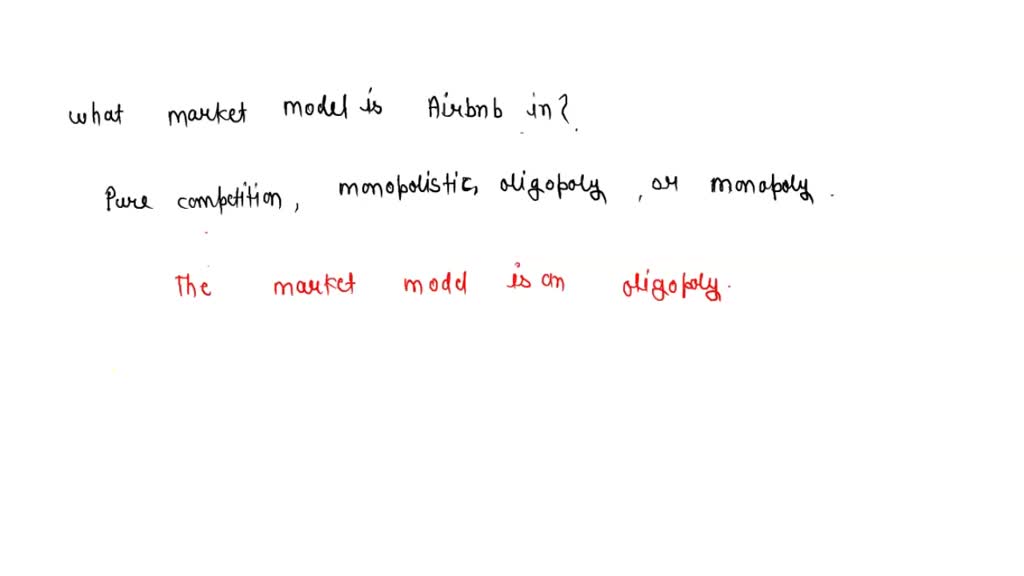 what market model is Airbnb in?
Pure competition, monopolistic, oligopoly, or monopoly.
The market model is an oligopoly.